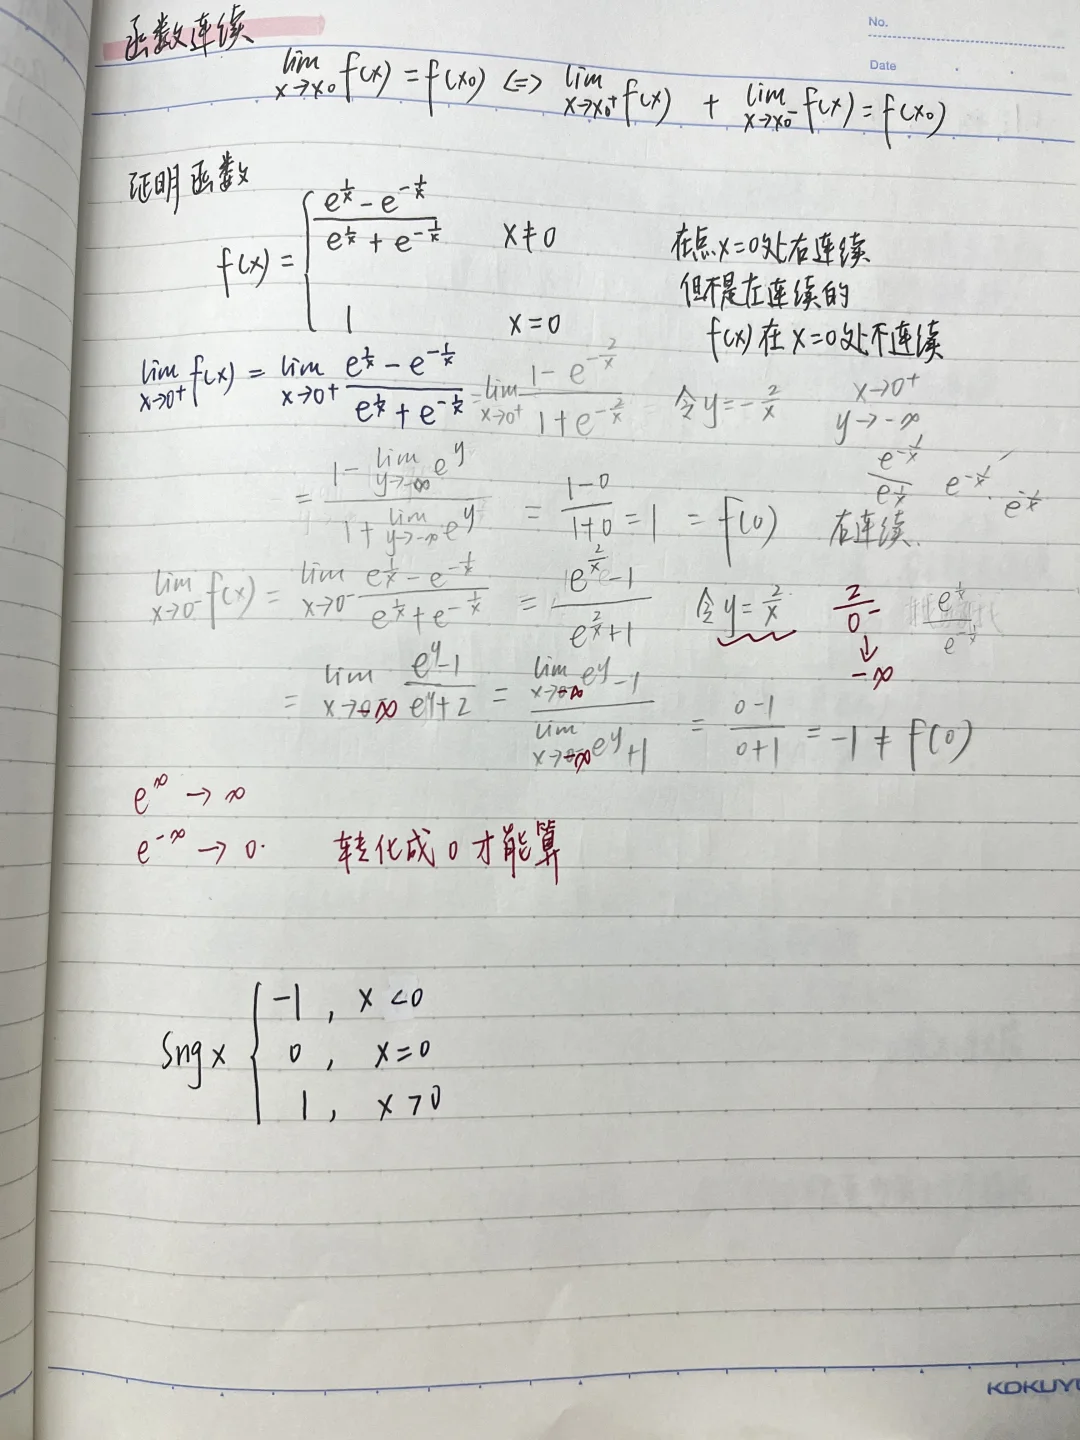 No.
Date
函数连续
lim x→x₀ f(x) = f(x₀) <=> lim x→x₀⁺ f(x) + lim x→x₀⁻ f(x) = f(x₀)
证明函数
f(x) = { (e^(1/x) - e^(-1/x)) / (e^(1/x) + e^(-1/x)) x≠0
1 x=0
在点x=0处右连续
但不是左连续的
f(x)在x=0处不连续
lim x→0⁺ f(x) = lim x→0⁺ (e^(1/x) - e^(-1/x)) / (e^(1/x) + e^(-1/x)) = lim x→0⁺ (1 - e^(-2/x)) / (1 + e^(-2/x)) 令y=-2/x x→0⁺
y→-∞
= (1 - lim y→-∞ e^y) / (1 + lim y→-∞ e^y) = (1-0)/(1+0) = 1 = f(0) 右连续.
e^(-1/x) / e^(1/x) e^(-1/x) · e^(-1/x)
lim x→0⁻ f(x) = lim x→0⁻ (e^(1/x) - e^(-1/x)) / (e^(1/x) + e^(-1/x)) = (e^(2/x) - 1) / (e^(2/x) + 1) 令y=2/x 2/0⁻ e^(1/x) / e^(-1/x)
↓
-∞
= lim x→-∞ (e^y - 1) / (e^y + 2) = lim x→-∞ e^y - 1 / lim x→-∞ e^y + 1 = (0-1)/(0+1) = -1 ≠ f(0)
e^∞ → ∞
e^-∞ → 0. 转化成0才能算
Sng x { -1 , x <0
0 , x=0
1 , x >0
KOKUYO